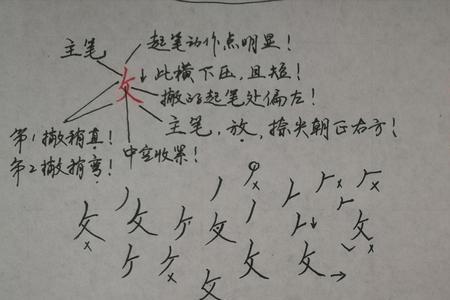 主笔
起笔动作点明显！
此横下压，且短！
撇的起笔处偏左！
攵
主笔，放，捺尖朝正右方！
第1撇稍直！
第2撇稍弯！
中宫收紧！
攵 攵 攵 攵
攵 攵 攵